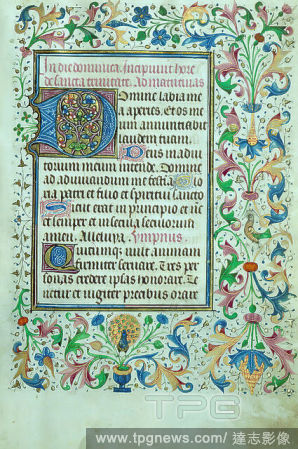 In die dominica. Incipiunt hore
de sancta trinitate. Ad matutinas
Domine labia me
a aperies. Et os me
um annunciabit
laudem tuam.
Deus in adiu
torium meum intende. Domine
ad adiuvandum me festia Glo
ria patri et filio et spiritui sancto
Sicut erat in principio et nc̄
et semper et in secula seculorum
amen. Alleluya. Ympnus
Quicumque vult animam
firmiter servare. Tres per
sonas credere ipsas honorare. De
lectur et iugiter precibus orare
TPG
www.tpgnews.com/ 達志影像